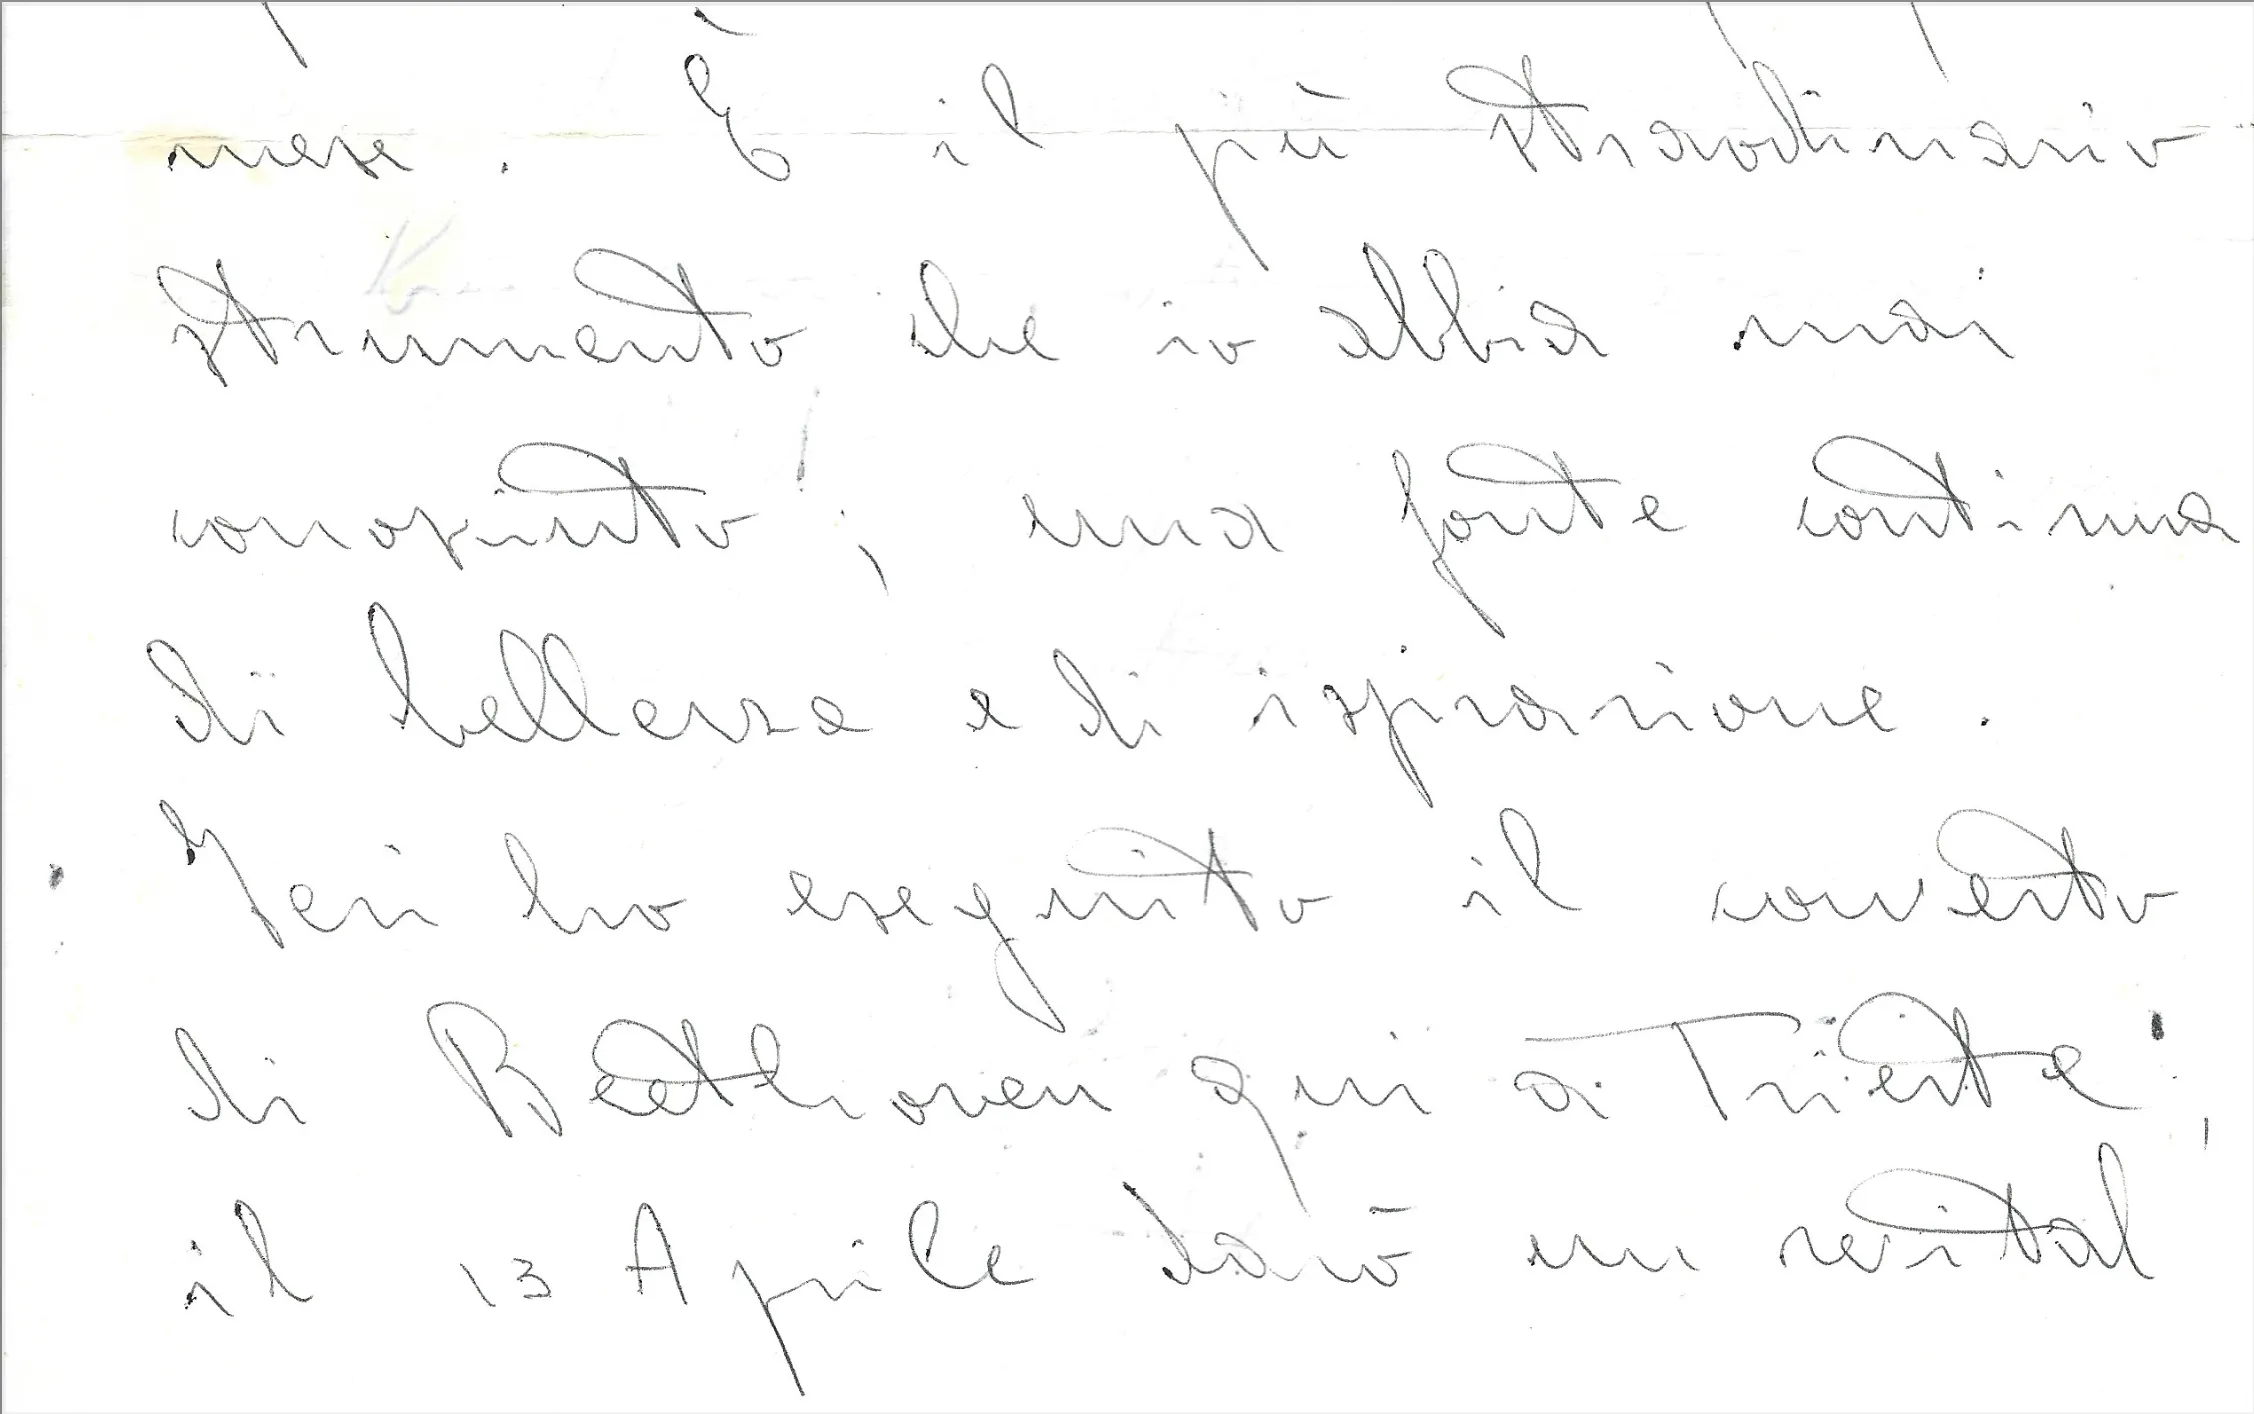 mese. È il più straordinario
strumento che io abbia mai
conosciuto, una fonte continua
di bellezza e di ispirazione.
Ieri ho eseguito il concerto
di Beethoven qui a Trieste,
il 13 Aprile darò un recital